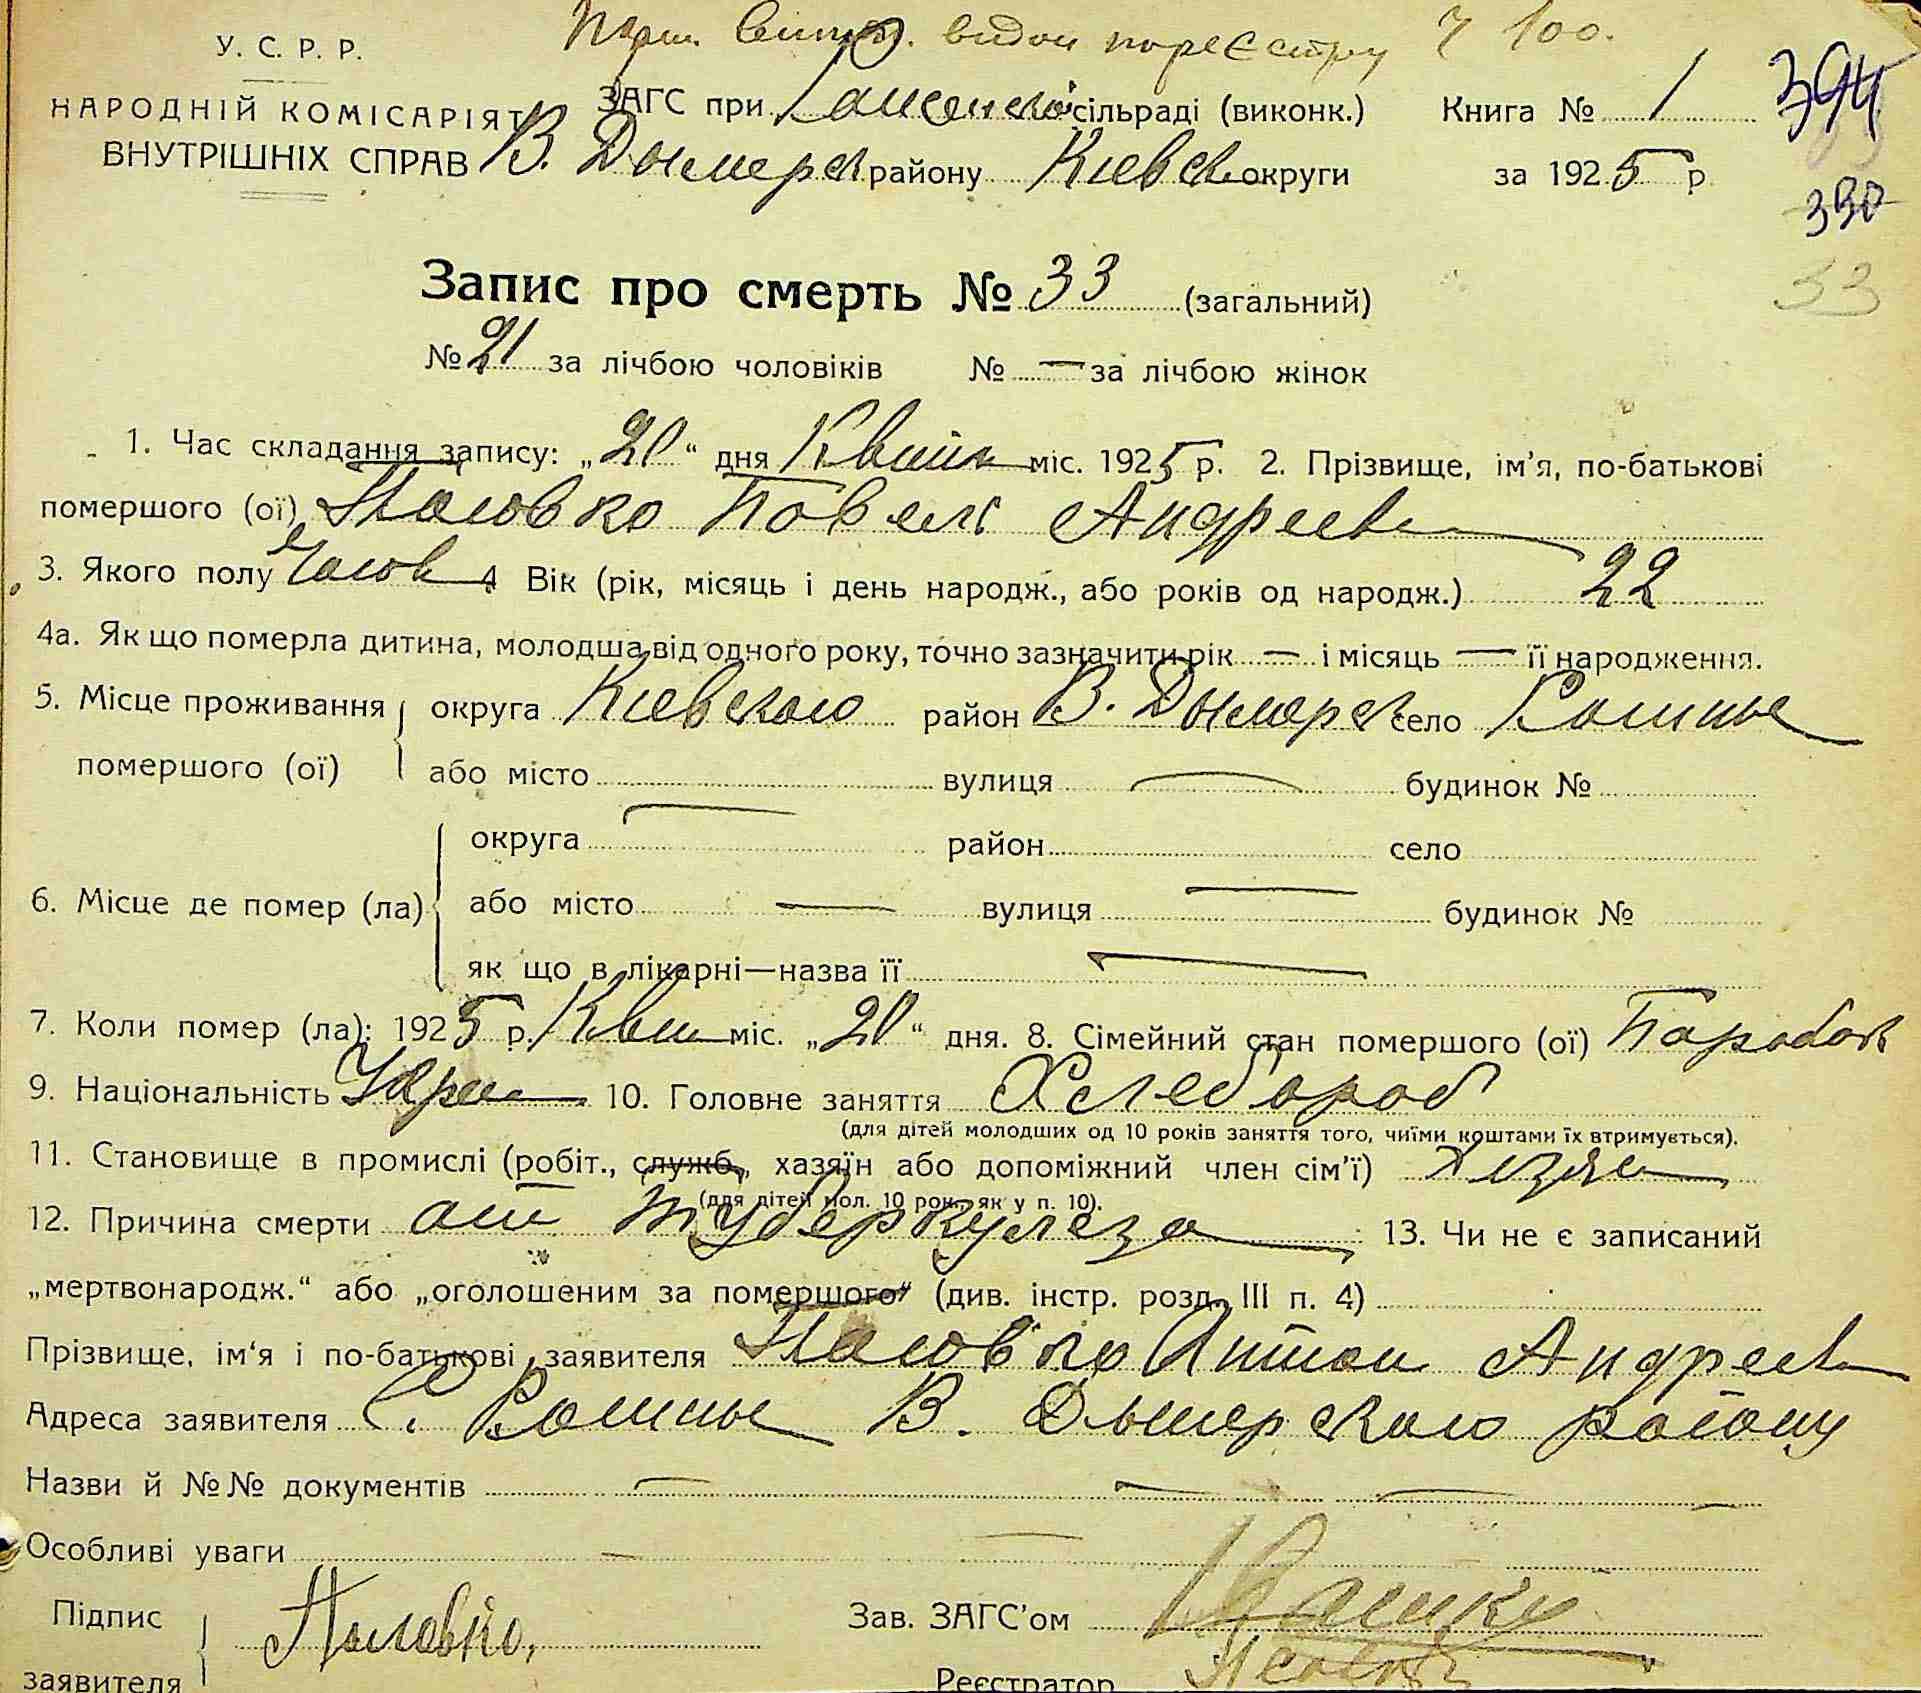 У. С. Р. Р.
видан по реєстру Ч 100.
НАРОДНІЙ КОМІСАРІЯТ ЗАГС при сільраді (виконк.) Книга № 1 394
ВНУТРІШНІХ СПРАВ В. Дымерск району Киевск округи за 1925 р. 390
Запис про смерть № 33 (загальний) 33
№ 21 за лічбою чоловіків № — за лічбою жінок
1. Час складання запису: „20“ дня Квітн міс. 1925 р. 2. Прізвище, ім'я, по-батькові
помершого (ої) Павел Андреев
3. Якого полу Чолов 4 Вік (рік, місяць і день народж., або років од народж.) 22
4а. Як що померла дитина, молодша від одного року, точно зазначити рік — і місяць — її народження.
5. Місце проживання округа Киевского район В. Дымерск село
помершого (ої) або місто вулиця — будинок №
округа — район село
6. Місце де помер (ла) або місто — вулиця — будинок №
як що в лікарні—назва її —
7. Коли помер (ла): 1925 р. Квіт міс. „20“ дня. 8. Сімейний стан помершого (ої) Парубок
9. Національність Укра 10. Головне заняття Хлебороб
(для дітей молодших од 10 років заняття того, чиїми коштами їх втримується).
11. Становище в промислі (робіт., служб., хазяїн або допоміжний член сім'ї) Хазяе
(для дітей мол. 10 рок., як у п. 10).
12. Причина смерти от туберкулеза 13. Чи не є записаний
„мертвонародж.“ або „оголошеним за помершого“ (див. інстр. розд. III п. 4)
Прізвище, ім'я і по-батькові заявителя Антон Андреев
Адреса заявителя с. В. Дымерского району
Назви й №№ документів — — — —
Особливі уваги — —
Підпис Зав. ЗАГС'ом
заявителя Реєстратор